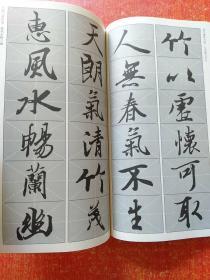 竹以虛懷可取
人無春氣不生
天朗氣清竹茂
惠風水暢蘭幽